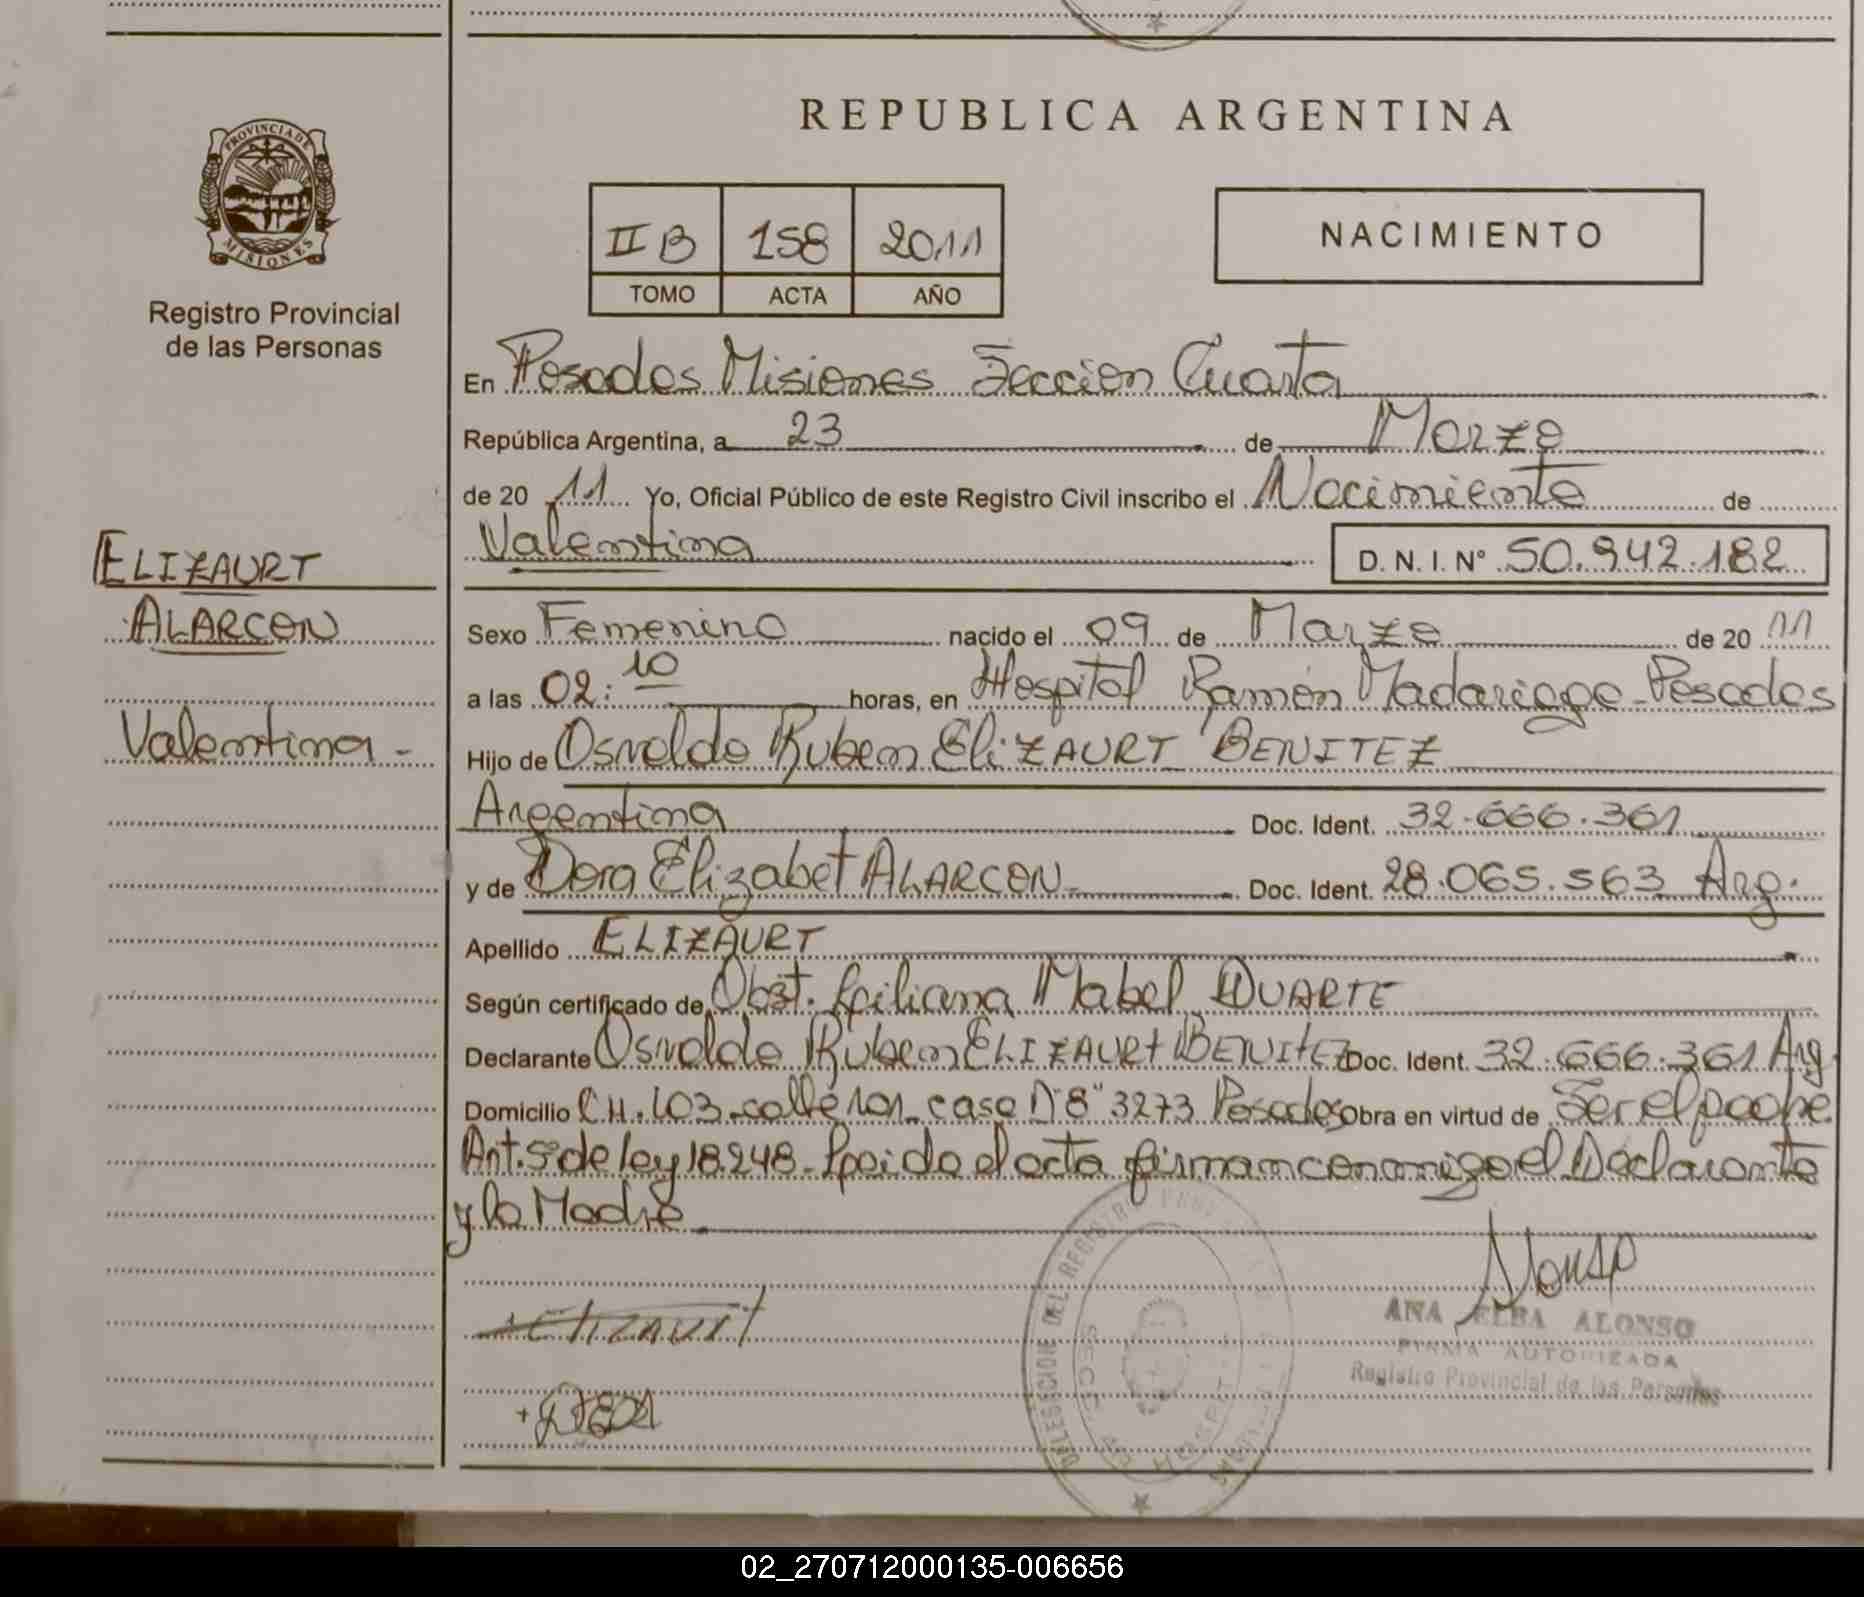 REPUBLICA ARGENTINA
PROVINCIA DE
MISIONES
Registro Provincial
de las Personas
II B 158 2011
TOMO ACTA AÑO
NACIMIENTO
En Posadas Misiones Seccion Cuarta
República Argentina, a 23 de Marzo
de 20 11 Yo, Oficial Público de este Registro Civil inscribo el Nacimiento de
Valentina D. N. I. Nº 50.942.182
ELIZAURT
ALARCON
Valentina -
Sexo Femenino nacido el 09 de Marzo de 20 11
a las 02:10 horas, en Hospital Ramón Madariaga - Posadas
Hijo de Osvaldo Ruben EliZAURT BENITEZ
Argentina Doc. Ident. 32.666.361
y de Dora Elizabet ALARCON Doc. Ident. 28.065.563 Arg.
Apellido ELIZAURT
Según certificado de Obst. Liliana Mabel DUARTE
Declarante Osvaldo Ruben ELIZAURT BENITEZ Doc. Ident. 32.666.361 Arg.
Domicilio CH. 103 - calle 101 - casa N° 8" 3273 Posadas Obra en virtud de Ser el padre
Art. 5° de ley 18.248 - Leida el acta firman conmigo el Declarante
y la Madre
Elizaurt
ANA ELBA ALONSO
FIRMA AUTORIZADA
Registro Provincial de las Personas
02_270712000135-006656